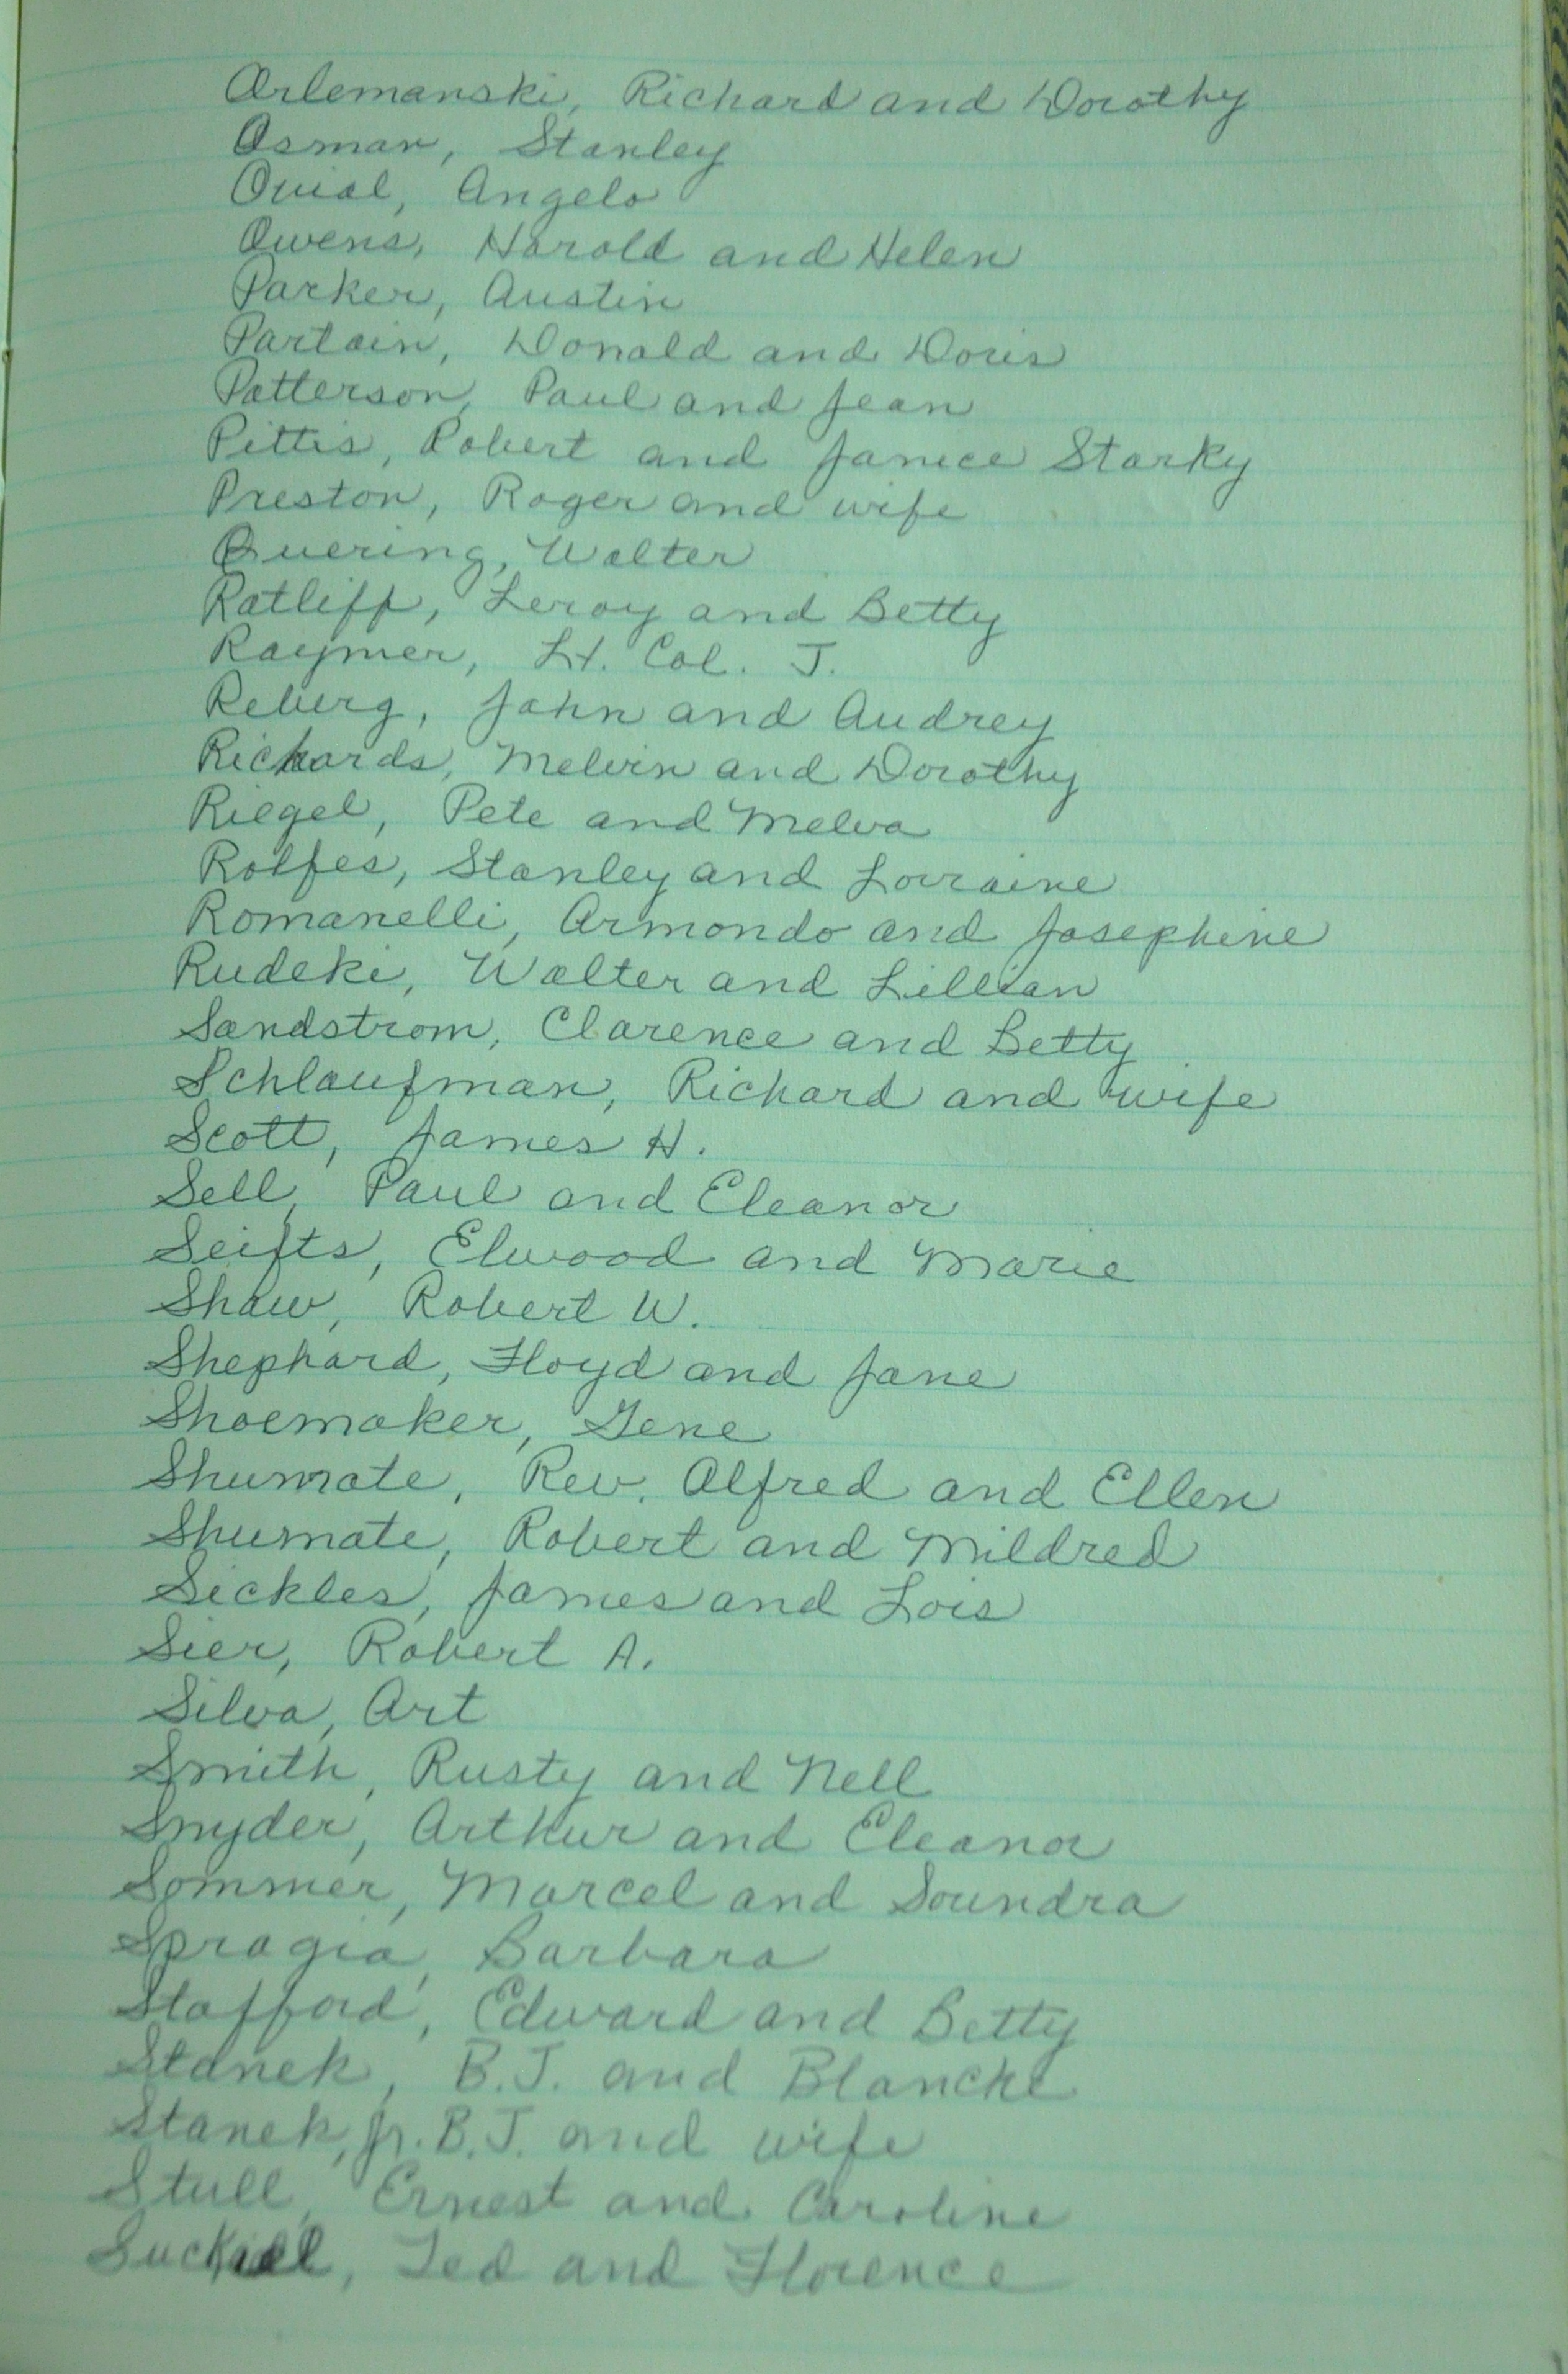 Orlemanski, Richard and Dorothy
Osman, Stanley
Ouial, Angelo
Owens, Harold and Helen
Parker, Austin
Partain, Donald and Doris
Patterson, Paul and Jean
Pittis, Robert and Janice Starky
Preston, Roger and wife
Quering, Walter
Ratliff, Leroy and Betty
Raymer, Lt. Col. J.
Reberg, John and Audrey
Richards, Melvin and Dorothy
Riegel, Pete and Melva
Rolfes, Stanley and Lorraine
Romanelli, Armondo and Josephine
Rudeki, Walter and Lillian
Sandstrom, Clarence and Betty
Schlaufman, Richard and wife
Scott, James H.
Sell, Paul and Eleanor
Seifts, Elwood and Marie
Shaw, Robert W.
Shephard, Floyd and Jane
Shoemaker, Gene
Shumate, Rev. Alfred and Ellen
Shumate, Robert and Mildred
Sickles, James and Lois
Sier, Robert A.
Silva, Art
Smith, Rusty and Nell
Snyder, Arthur and Eleanor
Sommer, Marcel and Soundra
Spragia, Barbara
Stafford, Edward and Betty
Stanek, B.J. and Blanche
Stanek, Jr. B.J. and wife
Stull, Ernest and Caroline
Ted and Florence